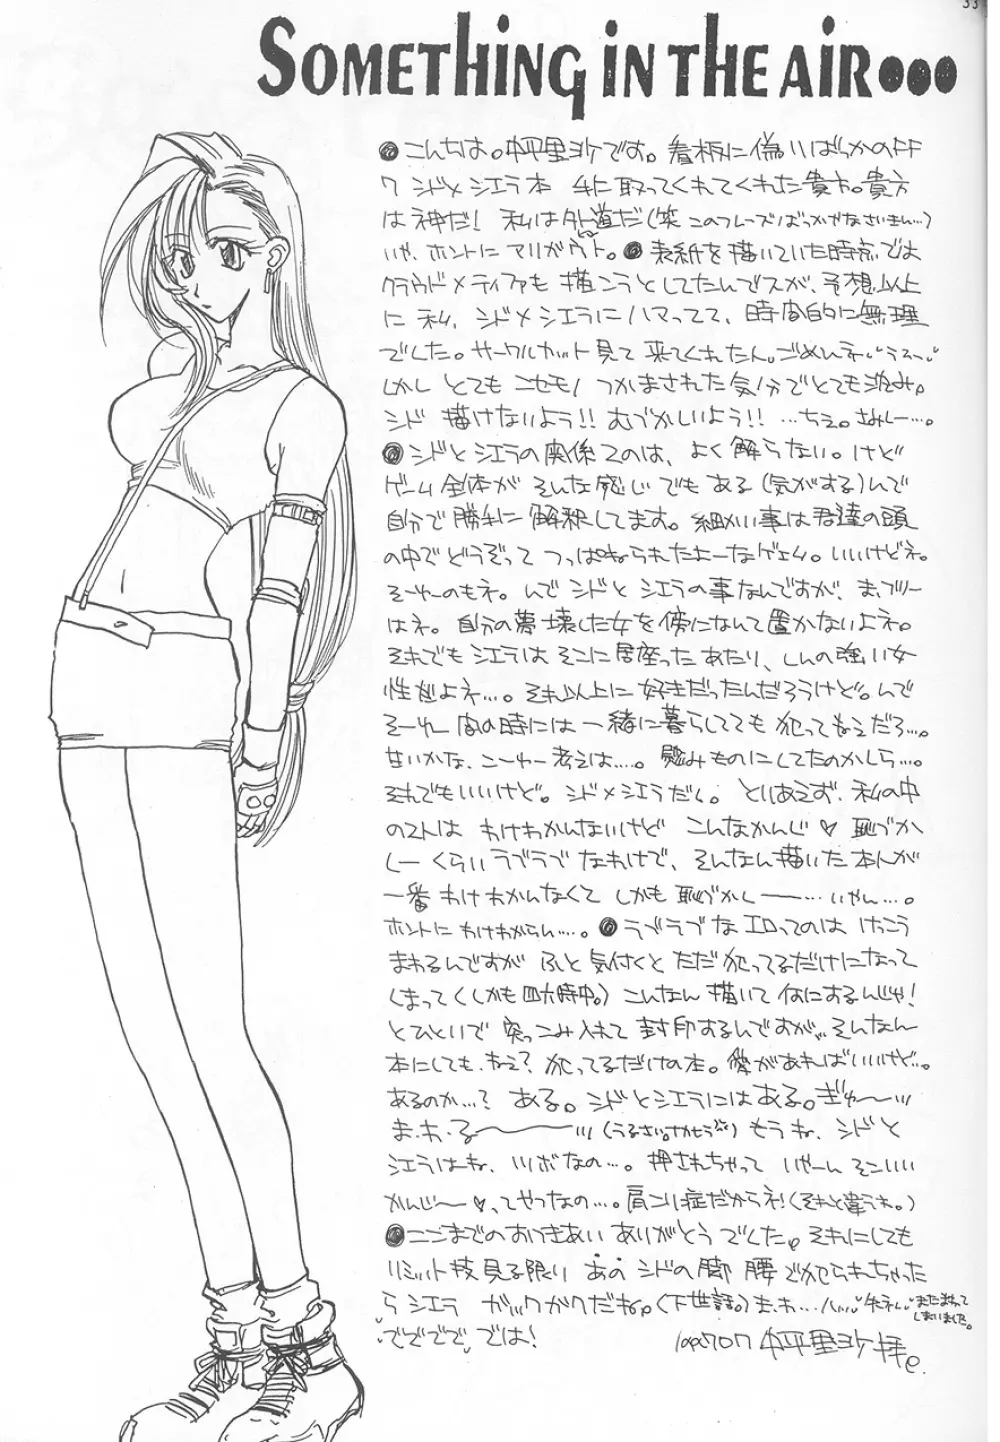 SOMETHING IN THE AIR•••
●こんちは。中平里沙です。看板に偽りばっかのFF
7 シド×シエラ本 手に取ってくれてくれた貴方。貴方
は神だ! 私は外道だ(笑 このフレーズばっかやなさいきん…)
いや、ホントにアリがウト。●表紙を描いていた時点では
クラウド×ティファも描こうとしてたんでスが、予想以上
に私、シド×シエラにハマってて、時間的に無理
でした。サークルカット見て来てくれたん。ごめんネ
しかし とても ニセモノ つかまされた気分でとても沈み。
シド 描けないよう!! むづかしいよう!! …ちぇ。さみしー…。
●シドとシエラの関係つのは、よく解らない。けど
ゲーム全体が そんな感じでもある(気がする)んで
自分で勝手に解釈してます。細かい事は君達の頭
の中でどうぞって つっぱねられたよーなゲェム。いいけどネ。
そーゆーのもネ。んで シドと シエラの事なんですが、ま、フツー
はネ。自分の夢壊した女を傍になんて置かないよネ。
それでもシエラは そこに居座ったあたり、しんの強い女
性だよネ…。それ以上に好きだったんだろうけど。んで
そーゆー 仲の時には 一緒に暮らしてても 犯ってもねえだろ…。
甘いかな、こーゆー考えは……。慰みものにしてたのかしら…。
それでもいいけど。シド×シエラだし。とりあえず、私の中
のストは わけわかんないけど こんなかんじ♥ 恥づか
しーくらいラブラブでなわけで、そんなん描いた本人が
一番わけわかんなくて しかも 恥づかしーー…いやん…。
ホントに わけわからん…。●ラブラブなエロってのは けっこう
まわるんですが ふと 気付くと ただ犯ってるだけになって
しまって(しかも四六時中。)こんなん 描いて 何にするんじゃ!
とひといで 突っこみ入れて 封印するんですが… そんなん
本にしても、ねえ? 犯ってるだけの本。愛があればいいけど…。
あるのか…? ある。シドとシエラにはある。ぎゅ〜
ま・わ・る〜 もうね、シドと
シエラはね、ツボなの…。押されちゃって いやーん そこいい
かんじ〜♥ってやつなの…。肩コリ症だからネ!(それと違うわ。)
●ここまでのおつきあい ありがとう でした。それにしても
リミット技見る限り あの シドの脚 腰 で犯られちゃった
ら シエラ ガックガクだね。(下世話。)ま、ね…
またまわってしまいました。
でででで、では!
中平里沙拝